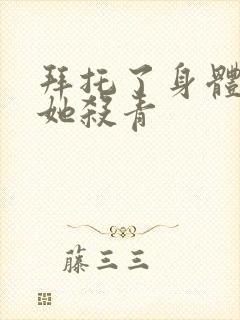 拜托了身體
她殺青
藤三三